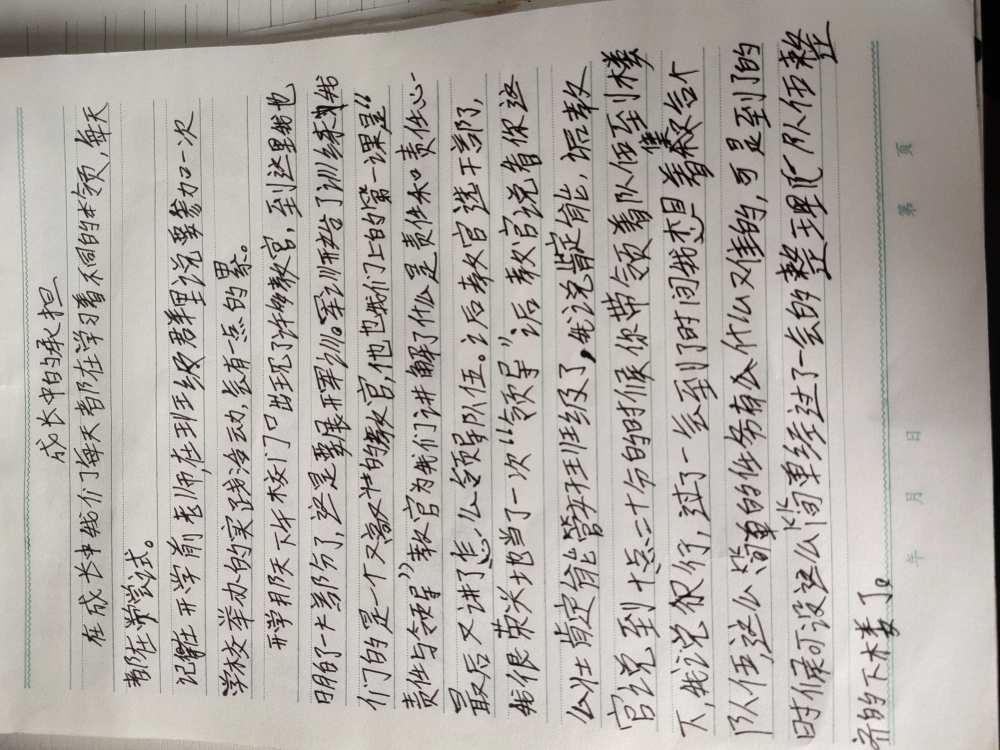 成长中的承担
在成长中我们每天都在学习着不同的本领,每天
都在尝试。
记在开学前老师在班级群里说要参加一次
学校举办的实践活动,会有一点的累。
开学那天下午校门口出现了许多教官,到这里我也
明白了一大部分了,这是要展开军训。军训开始了训练我
们的是一个又高又壮的教官,他也我们上的第一课是“
责任与领导”教官为我们讲解了什么是责任和责任心
最后又讲了怎么领导队伍。之后教官选干部了,
我很荣关地当了一次“领导”后教官说看你这
么壮肯定能管好班级了,我说肯定能,后教
官说到十点二十分的时候你带领着队伍到楼
下,我说很行,过了一会到了时间我想着集合个
队伍这么简单的任务有么什么难的,可是到了的
时候可没这么简单经过了一会的整理队伍整
齐的下楼了。
年 月 日 第 页